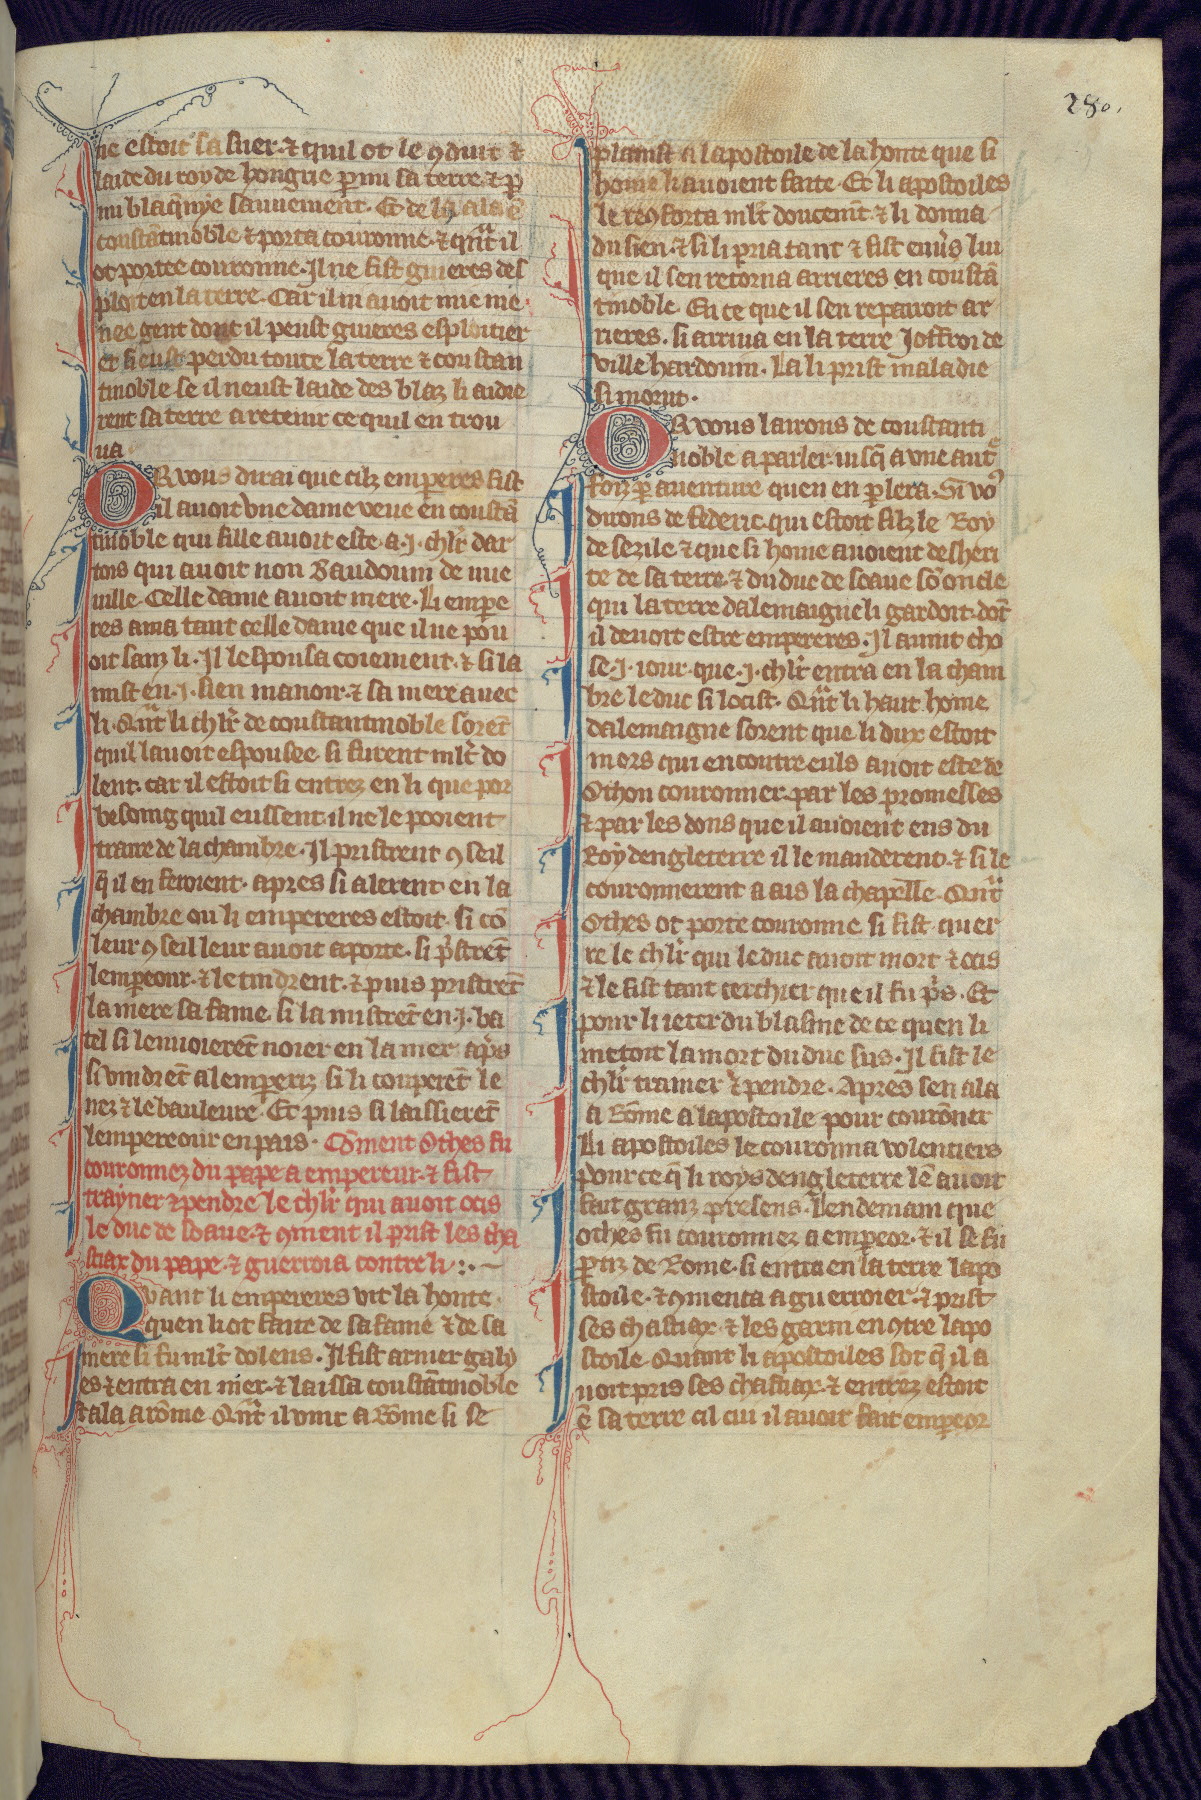 280.
ne estoit sa suer ⁊ quil ot le ꝯduit ⁊
laide du roy de hongrie ꝑmi sa terre ⁊ ꝑ
mi blaq̃nye sauuement. Et de la ala ẽ
coustãtinoble ⁊ porta couronne. ⁊ qñt il
ot portee couronne. Il ne fist guieres des
ploit en la terre. Car il ni auoit mie me
nee gent dont il peust guieres esploitier
et si eust perdu toute la terre ⁊ constan
tinoble se il neust laide des blaz li aidie
rent sa terre a retenir ce quil en trou
ua.
OR vous dirai que cilz emꝑeres fist
il auoit vne dame veue en coustã
tinoble qui fille auoit este .a .I. chlr̃ dar
tois qui auoit non Baudouin de nue
uille. Celle dame auoit mere. Li emꝑe
res ama tant celle dame que il ne pou
oit sanz li. Il lespousa coiement. ⁊ si la
mist en .I. sien manoir. ⁊ sa mere auec
li. Qñt li chlr̃ de coustantinoble sorẽt
quil lauoit espousee si furent mlt̃ do
lent. car il estoit si entrez en li que por
besoing quil eussent. il ne le pooient
traire de la chambre. Il pristrent ꝯseil
q̃ il en feroient. apres si alerent en la
chambre ou li empereres estoit. si cõ
leur ꝯseil leur auoit aporte. si p̃strẽt
lemꝑeour. ⁊ le tindrent. ⁊ puis pristrẽt
la mere sa fame. si la mistrẽt en .I. ba
tel si lenuoierẽt noier en la mer. ap̃s
si vindrẽt a lemꝑeriz si li couperẽt le
nez ⁊ le bauleure. Et puis si laissierẽt
lempereour en pais. Cõment Othes fu
couronnez du pape a empereur. ⁊ fist
trayner ⁊ pendre le chlr̃ qui auoit ocis
le duc de soaue. ⁊ ꝯment il prist les cha
stiax du pape. ⁊ guerroia contre li
Quant li empereres vit la honte
quen li ot faite de sa fame ⁊ de sa
mere si fu mlt̃ dolens. Il fist armer galy
es ⁊ entra en mer. ⁊ laissa coustãtinoble
⁊ ala a rõme. Qñt il vint a Rõme si se
plainst a lapostoile de la honte que si
home li auoient faite. Et li apostoiles
le recꝯforta mlt̃ doucem̃t ⁊ li donna
du sien. ⁊ si li pria tant ⁊ fist enũs lui
que il sen retorna arrieres en coustã
tinoble. En ce que il sen repairoit ar
rieres. si arriua en la terre Joffroi de
ville hardouin. La li prist maladie
si morut.
OR vous lairons de coustanti
noble a parler iusq̃ a vne aut̃e
foiz ꝑ auenture quen en ꝑlera. Si vo⁹
dirons de federic. qui estoit filz le Roy
de sezile ⁊ que si home auoient desheri
te de sa terre. ⁊ du duc de soaue sõ oncle
qui la terre dalemaigne li gardoit. dõt
il deuoit estre empereres. Il auint cho
se .I. iour. que .I. chlr̃ entra en la cham
bre le duc si locist. Qñt li haut home
dalemaigne sorent que li dux estoit
mors qui encontre euls auoit este de
Othon couronner. par les promesses
⁊ par les dons que il auoient eus du
Roy dengleterre il le manderent. ⁊ si le
couronnerent a ais la chapelle. Qñt
Othes ot porte couronne si fist quer
re le chlr̃ qui le duc auoit mort ⁊ ocis
⁊ le fist tant cerchier que il fu p̃s. Et
pour li ieter du blasme de ce quen li
metoit la mort du duc sus. Il fist le
chlr̃ trainer ⁊ pendre. Apres sen ala
a Rõme a lapostoile pour courõner
Li apostoiles le couronna volentiers
pour ce q̃ li roys dengleterre lẽ auoit
fait granz presens. Lendemain que
othes fu couronnez a emꝑeor. ⁊ il se fu
ꝑtiz de Rome. si entra en la terre lapo
stoile. ⁊ ꝯmenca a guerroier. ⁊ prist
ses chastiax. ⁊ les garni enꝯtre lapo
stoile. Quant li apostoiles sot q̃ il a
uoit pris ses chastiax. ⁊ entrez estoit
ẽ sa terre cil cui il auoit fait emꝑeor